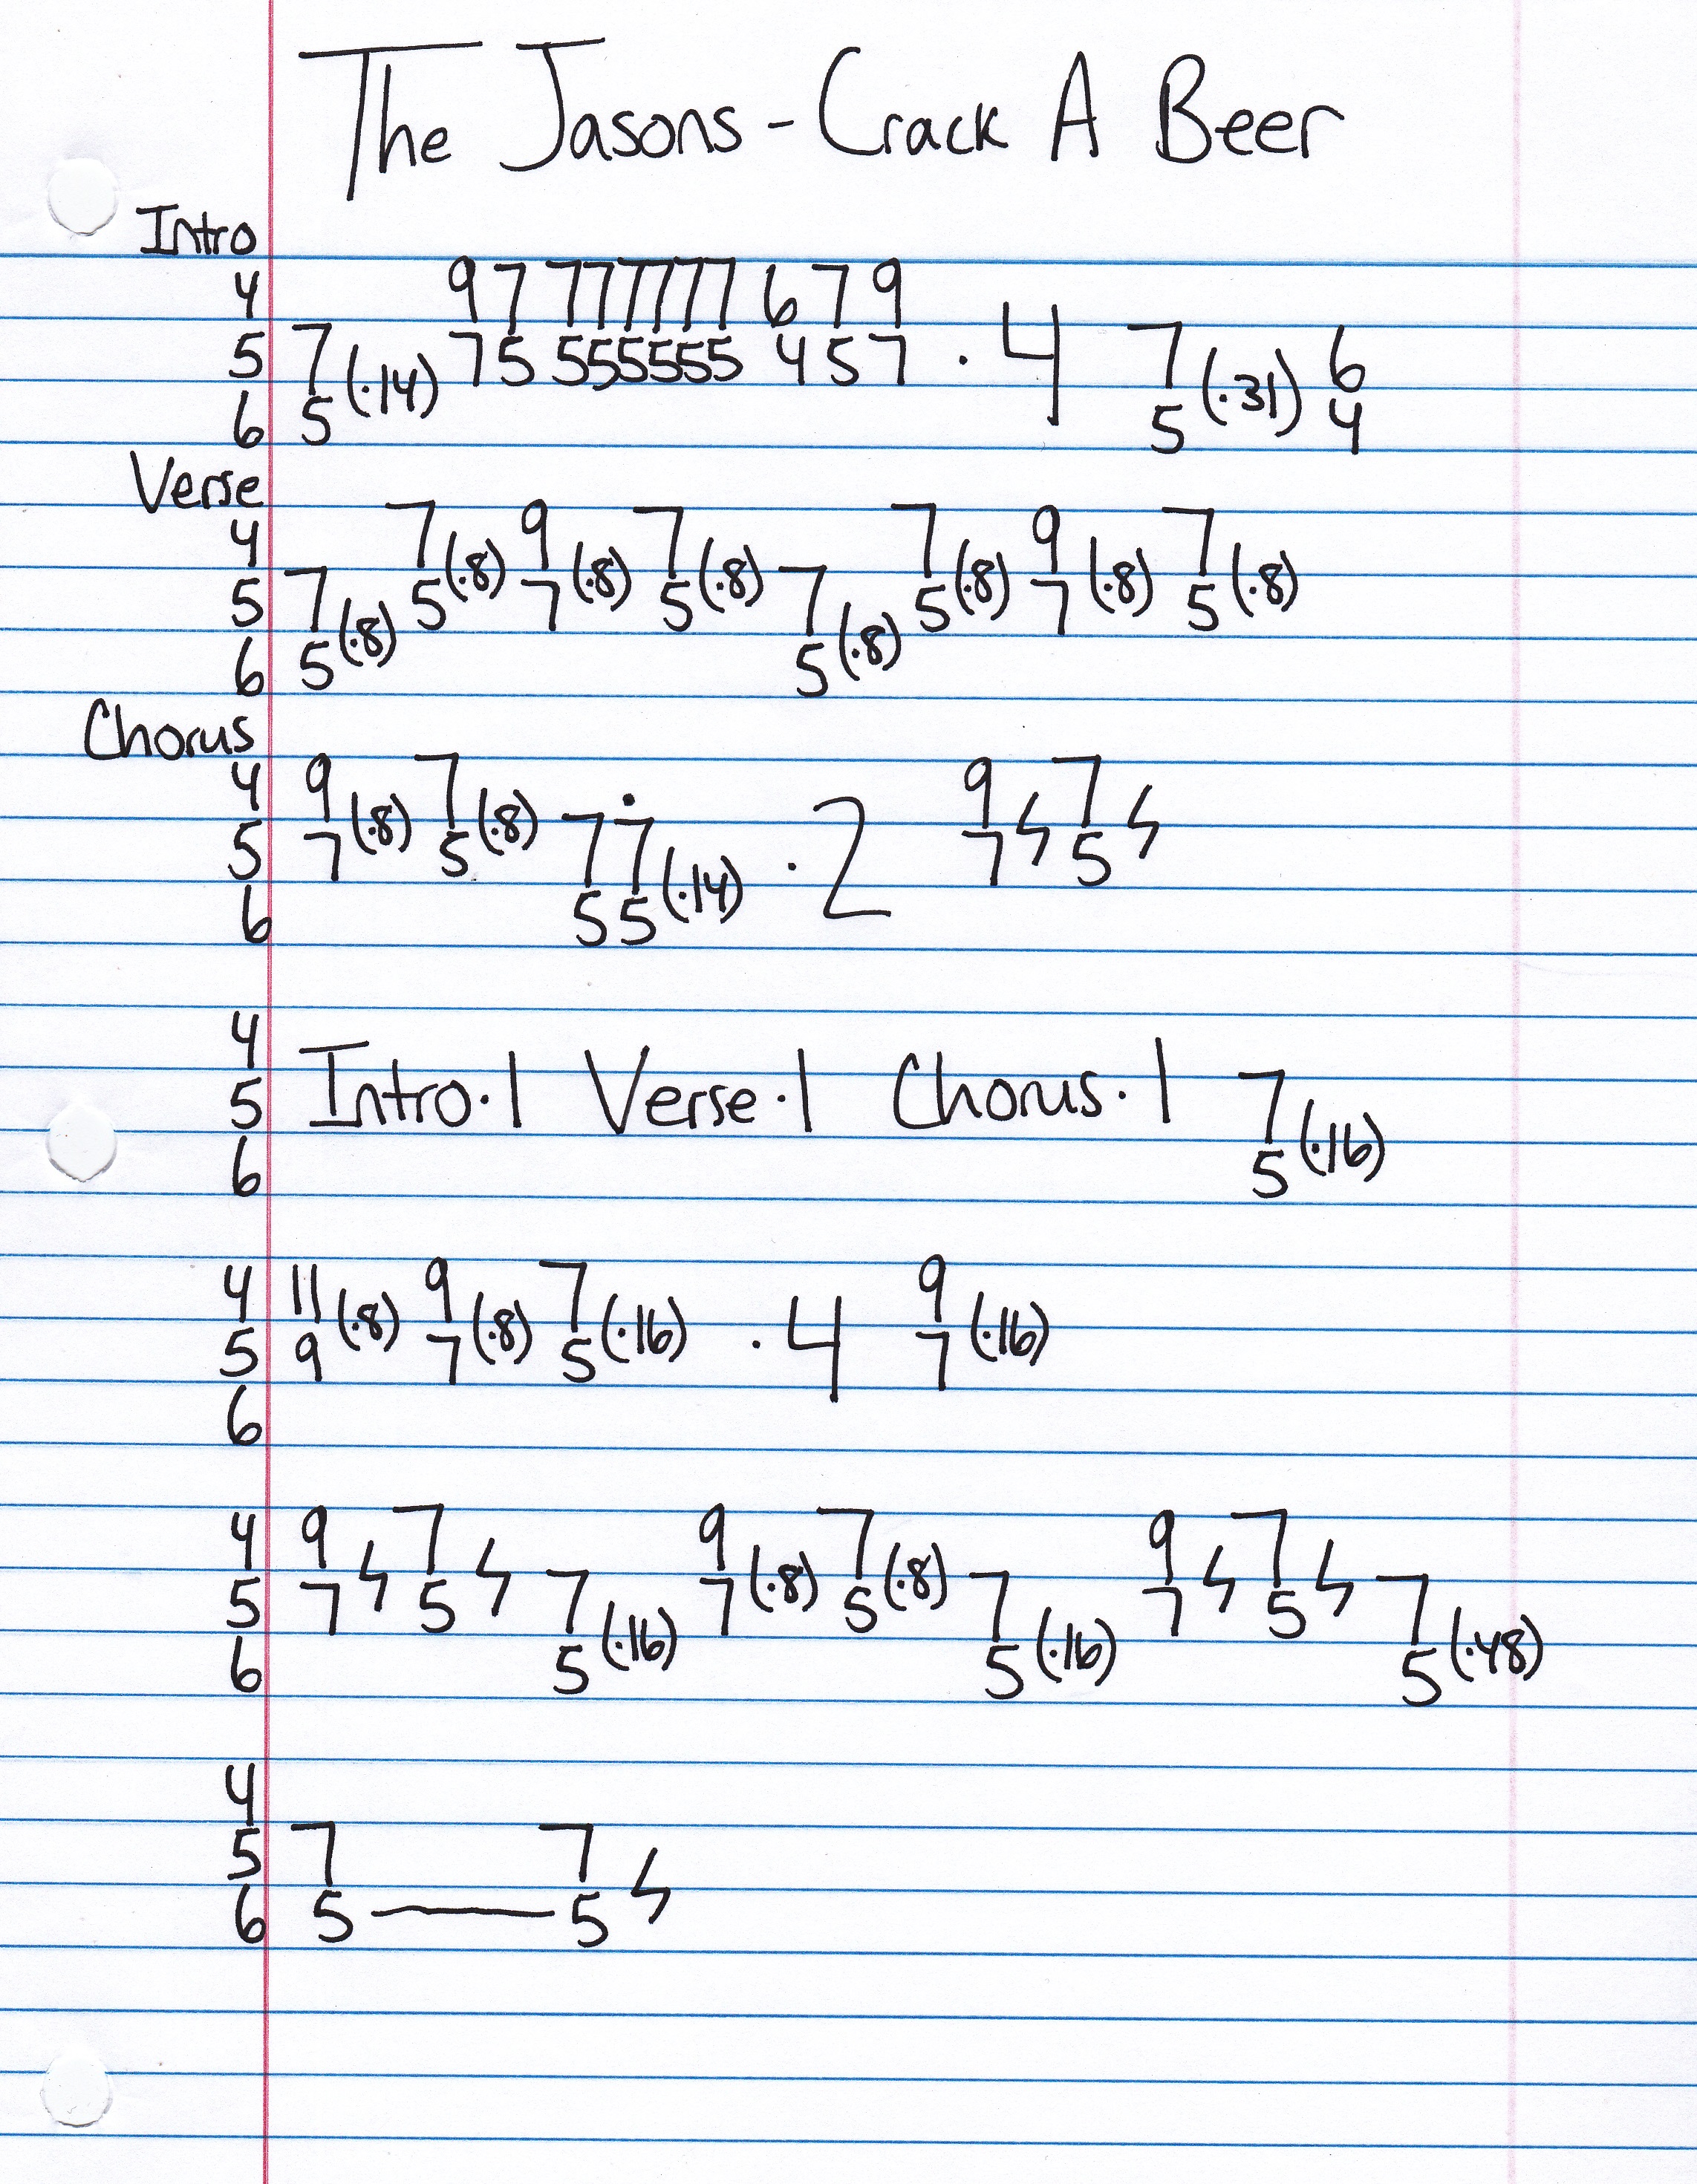 The Jasons - Crack A Beer
Intro
4 97 777777 679
5 7(·14) 75 555555 457 ·4 7(·31) 6
6 5 5 4
Verse
4 7(·8) 9(·8) 7(·8) 7(·8) 9(·8) 7(·8)
5 7(·8) 5 7 5 7(·8) 5 7 5
6 5 5
Chorus
4 9(·8) 7(·8) 9 ϟ 7 ϟ
5 7 5 77̇(·14) ·2 7 5
6 55
4
5 Intro·1 Verse·1 Chorus·1 7(·16)
6 5
4 11(·8) 9(·8) 7(·16) ·4 9(·16)
5 9 7 5 7
6
4 9 ϟ 7 ϟ 9(·8) 7(·8) 9 ϟ 7 ϟ
5 7 5 7(·16) 7 5 7(·16) 7 5 7(·48)
6 5 5 5
4
5 7 7 ϟ
6 5 — 5